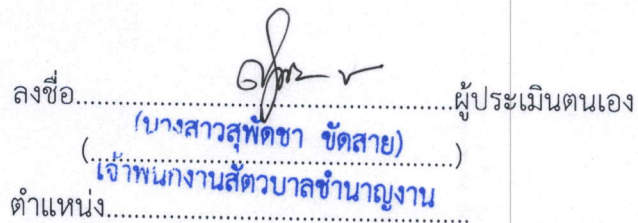 ลงชื่อ....................................................ผู้ประเมินตนเอง
(นางสาวสุพัดชา ขัดสาย)
(....................................................)
เจ้าพนักงานสัตวบาลชำนาญงาน
ตำแหน่ง....................................................